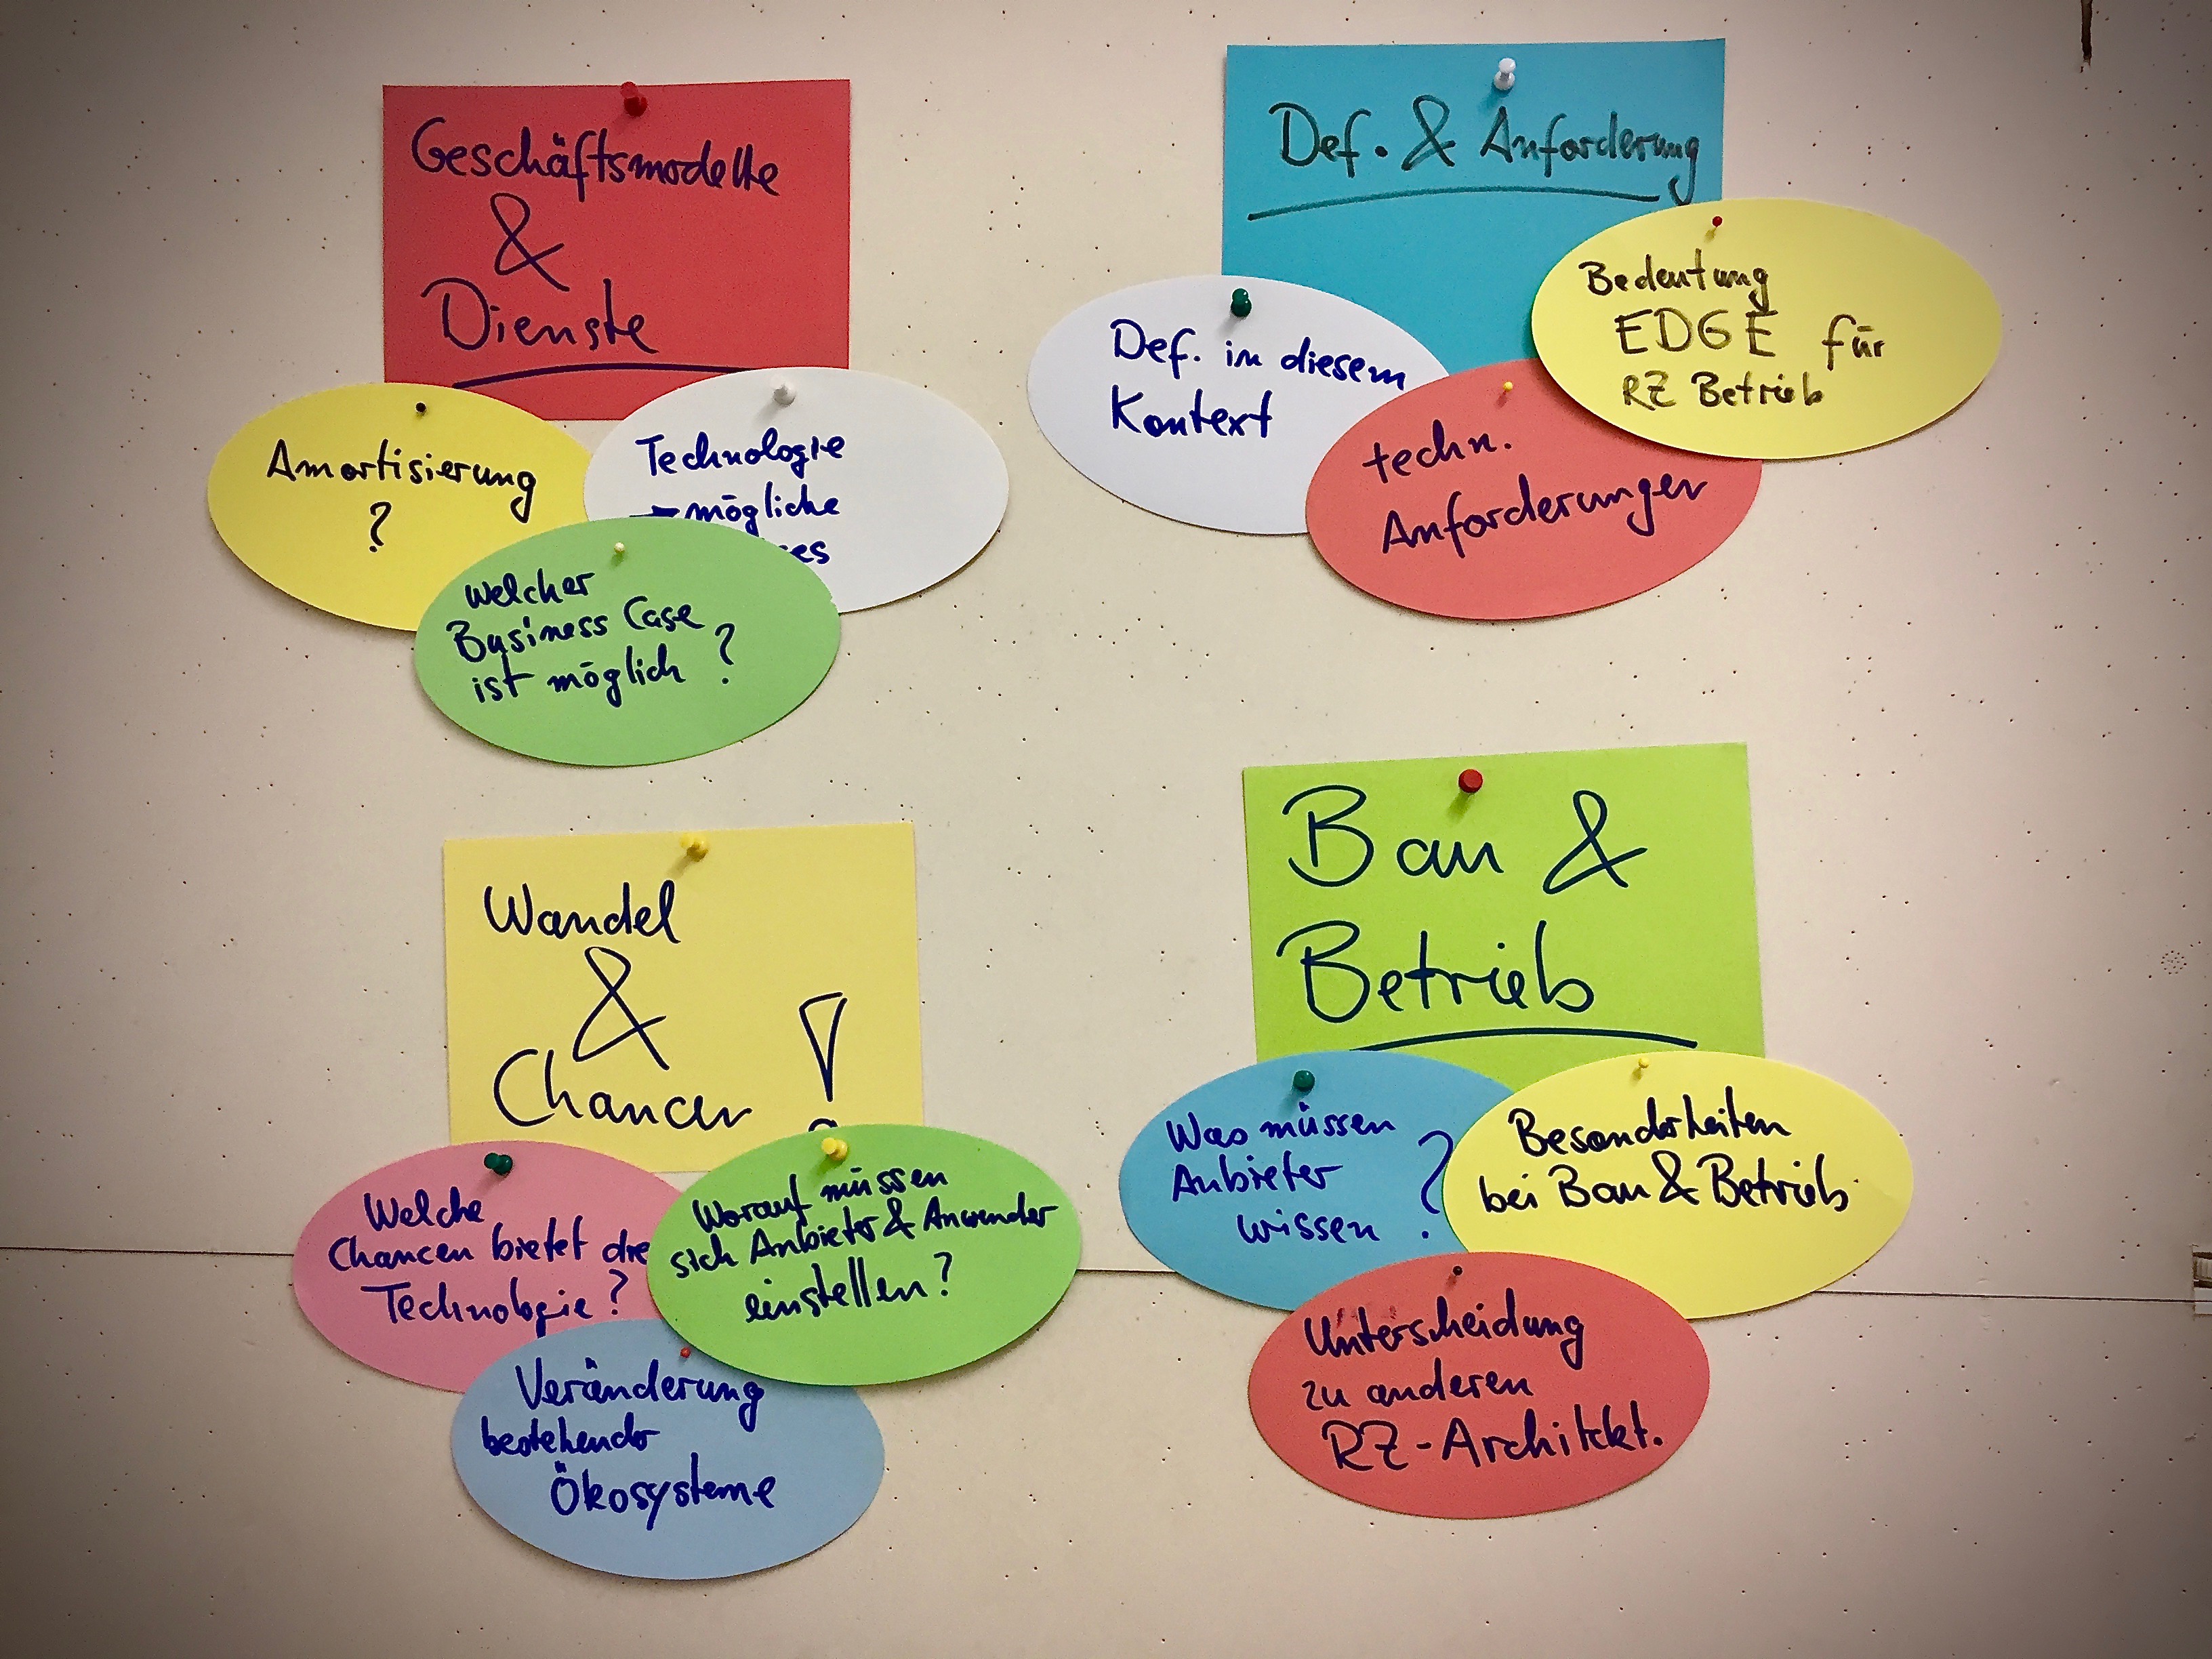 Geschäftsmodelle
&
Dienste
Amortisierung
?
Technologie
mögliche
Welcher
Business Case
ist möglich ?
Def. & Anforderung
Def. in diesem
Kontext
techn.
Anforderungen
Bedeutung
EDGE für
RZ Betrieb
Wandel
&
Chancen !
Welche
Chancen bietet die
Technologie?
Worauf müssen
sich Anbieter & Anwender
einstellen?
Veränderung
bestehender
Ökosysteme
Bau &
Betrieb
Was müssen
Anbieter
wissen ?
Besonderheiten
bei Bau & Betrieb
Unterscheidung
zu anderen
RZ-Architekt.